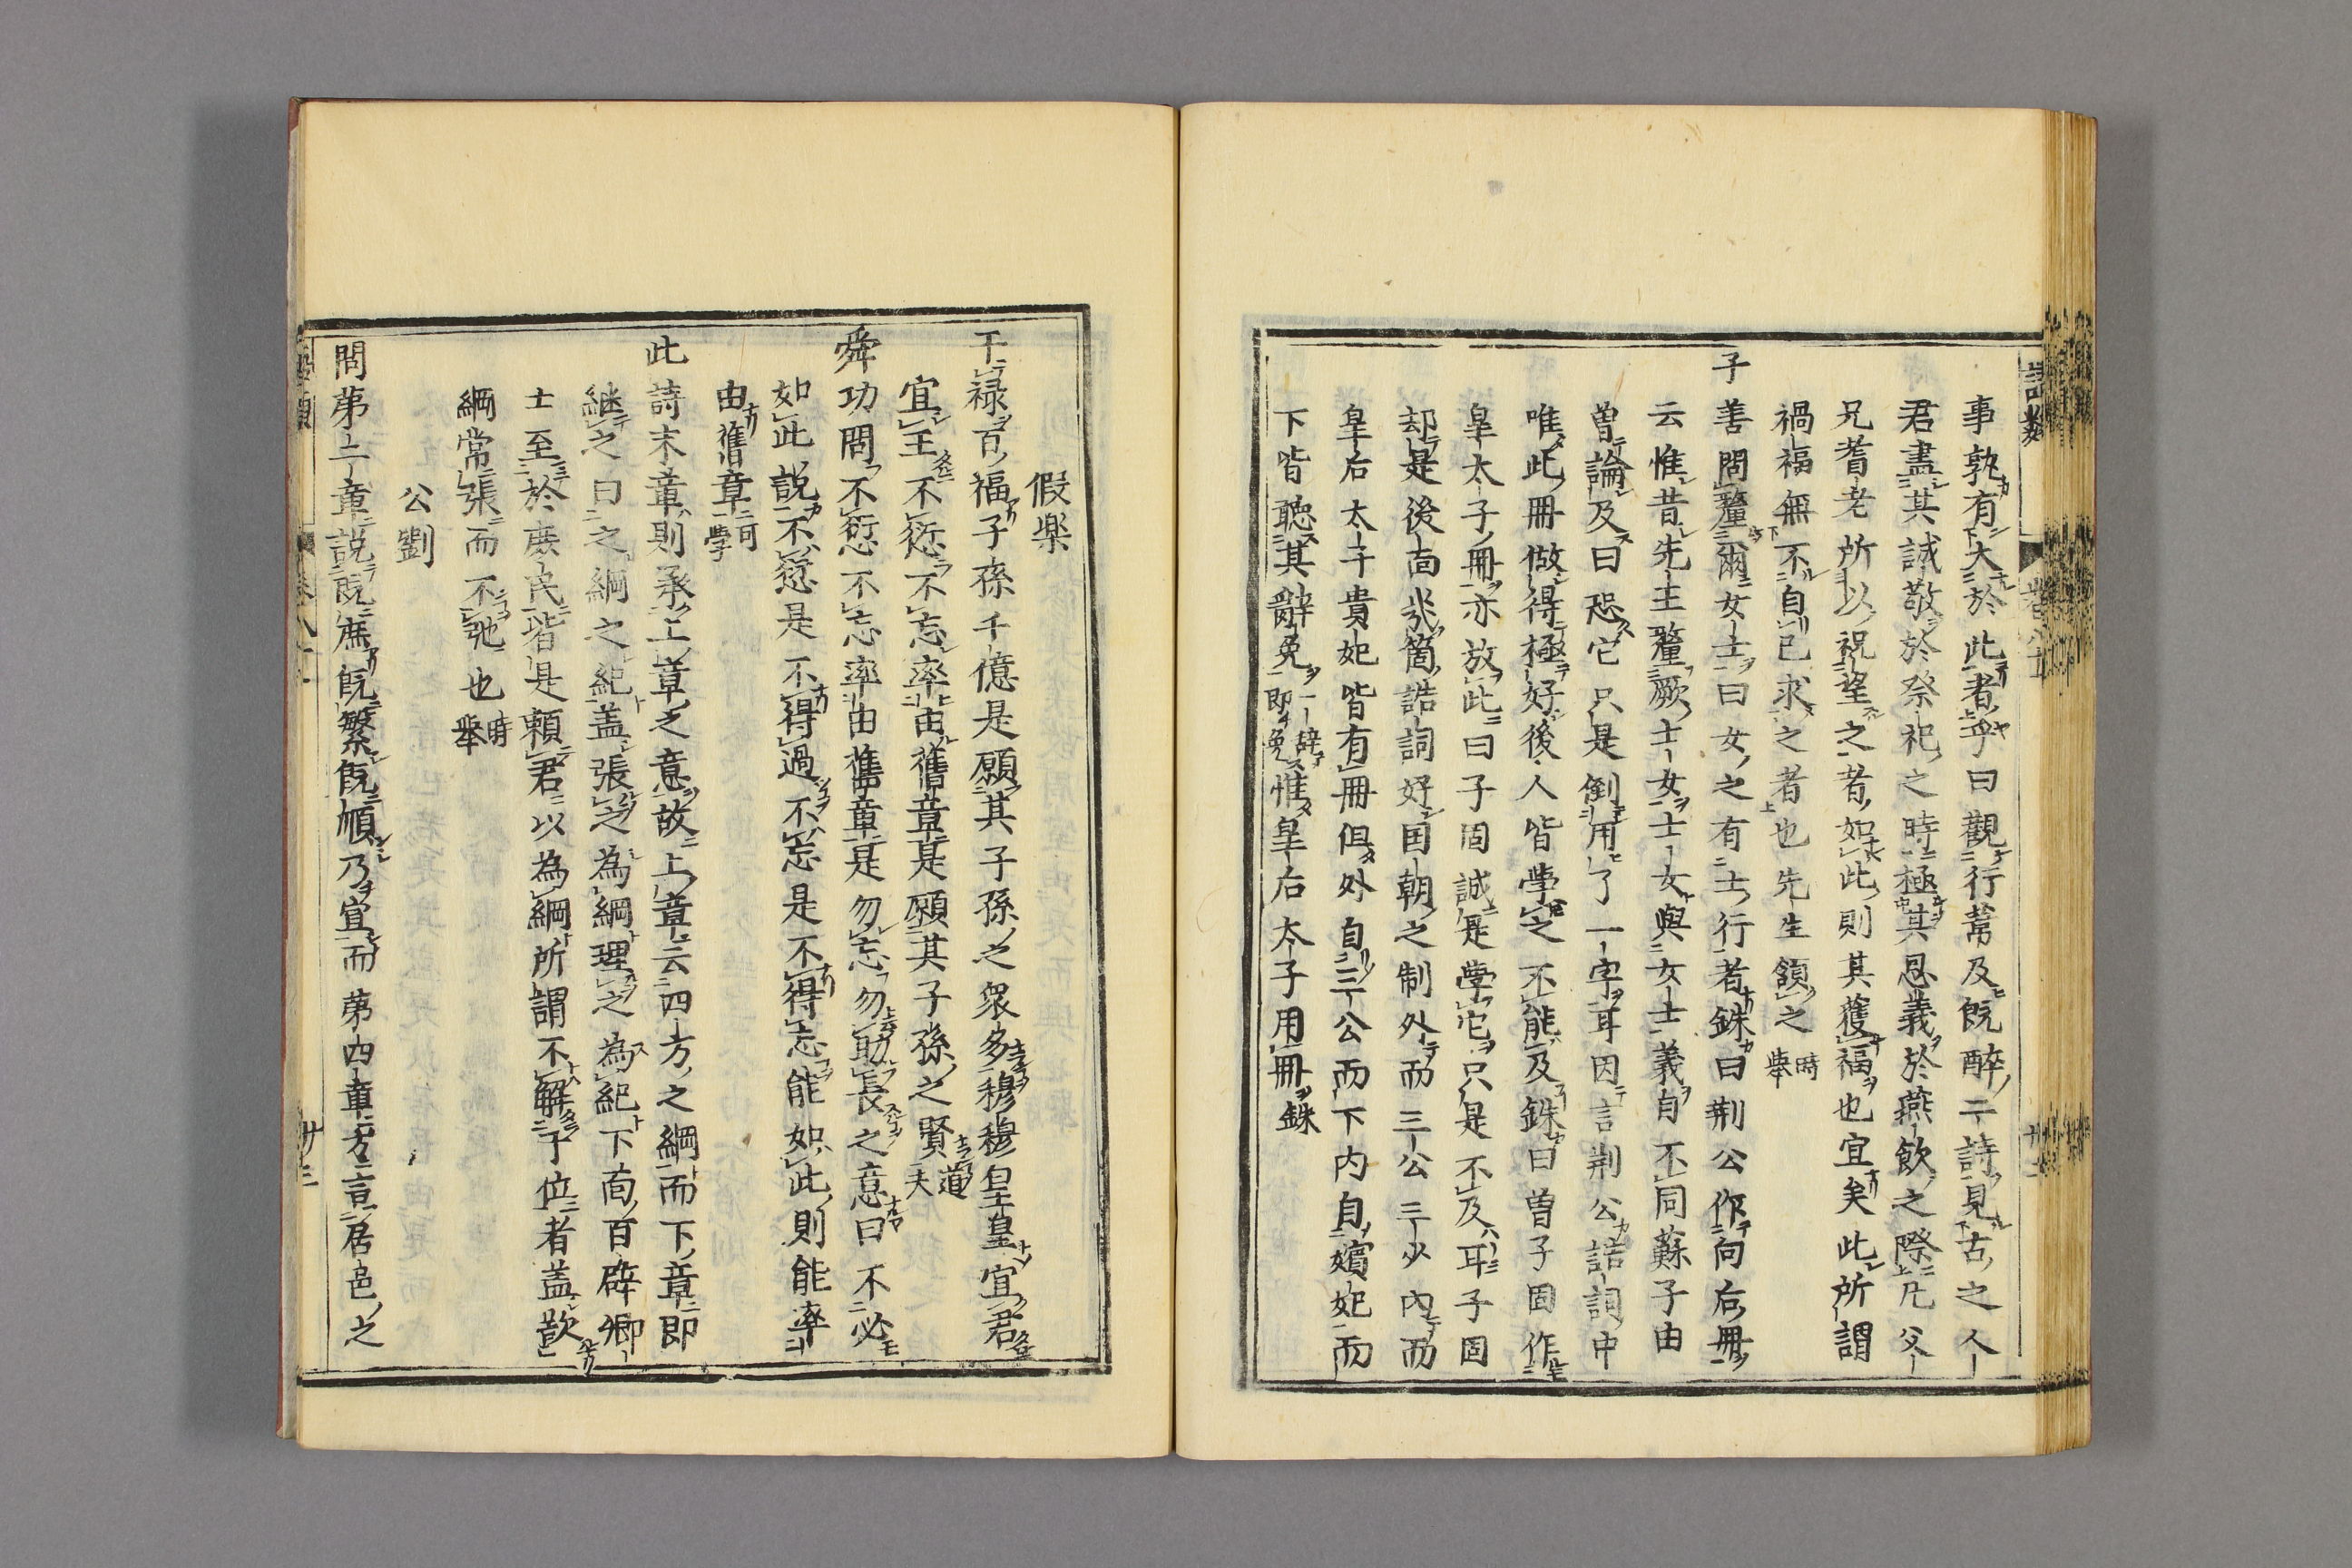 事孰有大於此者乎曰觀行葦及旣醉二詩見古之人
君盡其誠敬於祭祀之時極其恩義於燕飮之際凡父
兄耆老所以祝望之者如此則其獲福也宜矣此所謂
禍福無不自己求之者也先生頷之時舉
子善問釐爾女士曰女之有士行者銖曰荆公作向后冊
云惟昔先王釐厥士女士女與女士義自不同蘇子由
曾論及曰恐它只是倒用了一字耳因言荆公誥詞中
唯此冊做得極好後人皆學之不能及銖曰曽子固作
皇太子冊亦放此曰子固誠是學它只是不及耳子固
却是後面幾箇誥詞好国朝之制外而三公三少內而
皇后太子貴妃皆有冊但外自三公而下内自嬪妃而
下皆聽其辭免一辞即免惟皇后太子用冊銖
假楽
干祿百福子孫千億是願其子孫之衆多穆穆皇皇宜君
宜王不愆不忘率由舊章是願其子孫之賢道夫
舜功問不愆不忘率由舊章是勿忘勿助長之意曰不必
如此說不愆是不得過不忘是不得忘能如此則能率
由舊章可學
此詩末章則承上章之意故上章云四方之綱而下章即
継之曰之綱之紀蓋張之為綱理之為紀下面百辟卿
士至於庻民皆是賴君以為綱所謂不解于位者蓋欲
綱常張而不弛也時舉
公劉
問第二章說旣庶旣繁旣順乃宣而第四章方言居邑之